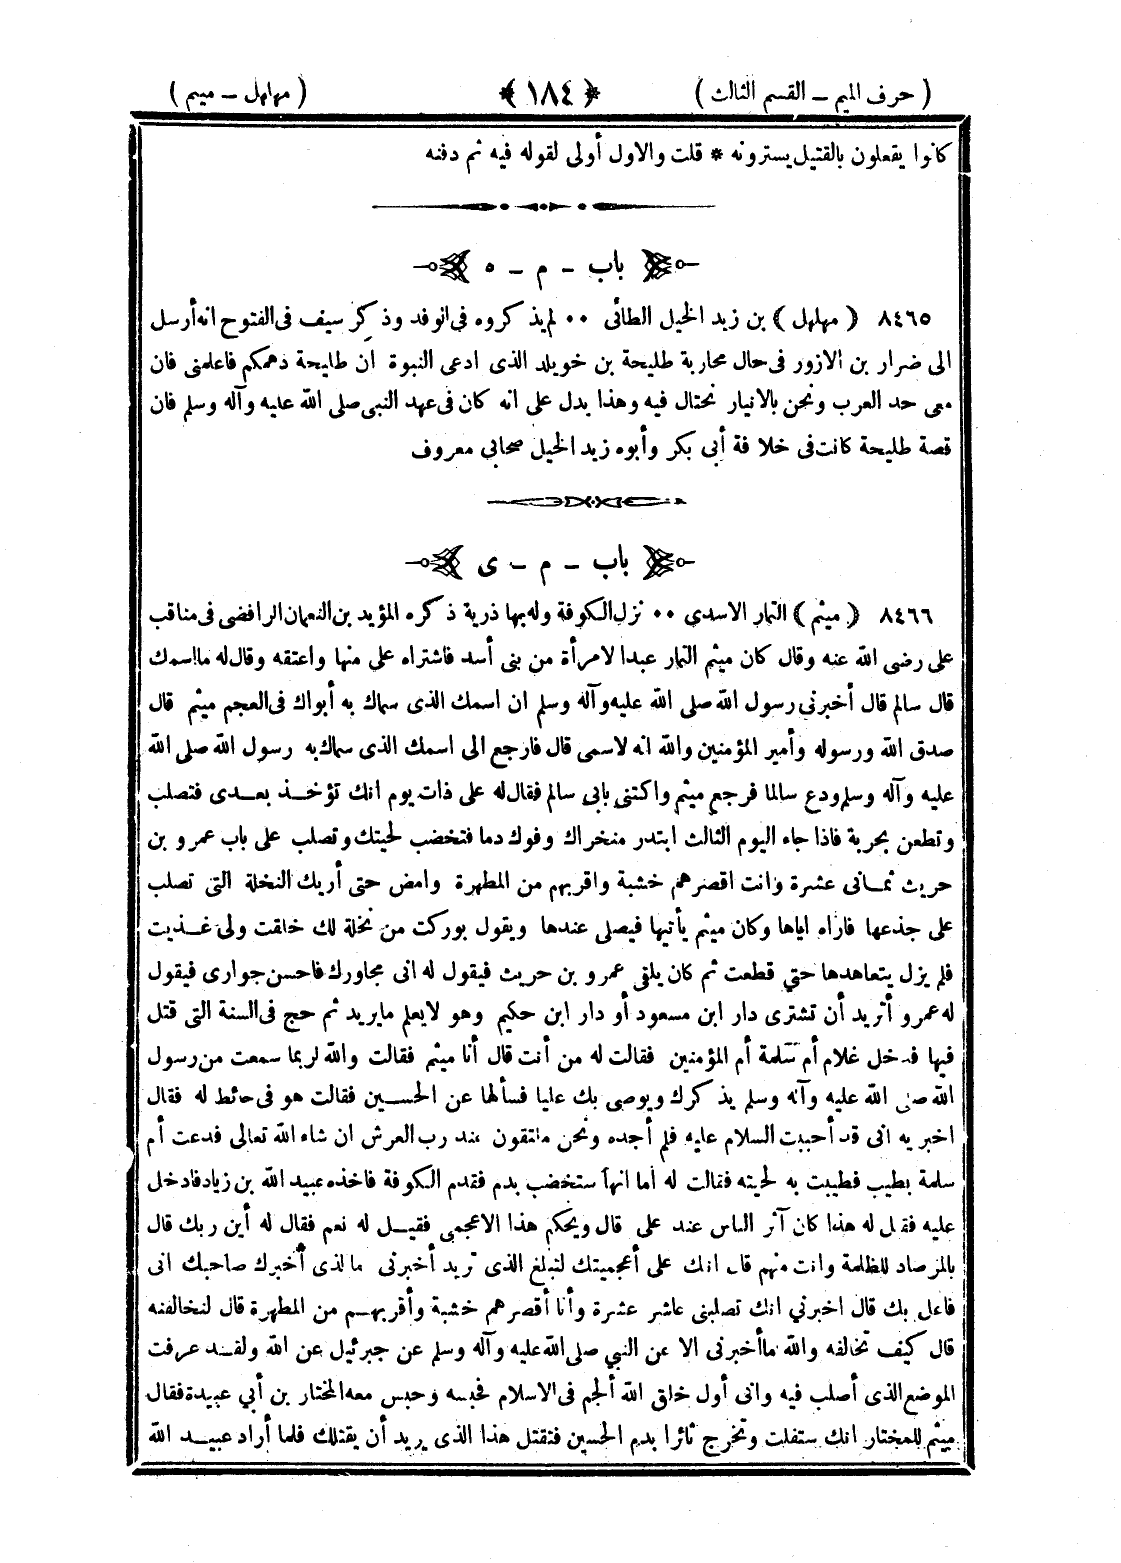 ( حرف الميم – القسم الثالث ) ﴿ ١٨٤ ﴾ ( مهلهل – ميثم )
كانوا يفعلون بالقتيل يسترونه * قلت والاول أولى لقوله فيه ثم دفنه
باب – م – ه
٨٤٦٥ ( مهلهل ) بن زيد الخيل الطائى ۰۰ لم يذكروه فى الوفد وذكر سيف فى الفتوح انه أرسل
الى ضرار بن الازور فى حال محاربة طليحة بن خويلد الذى ادعى النبوة ان طليحة دهمكم فاعلمنى فان
معى حد العرب ونحن بالانيار نحتال فيه وهذا يدل على انه كان فى عهد النبى صلى الله عليه وآله وسلم فان
قصة طليحة كانت فى خلافة أبى بكر وأبوه زيد الخيل صحابي معروف
باب – م – ى
٨٤٦٦ ( ميثم ) التمار الاسدى ۰۰ نزل الكوفة وله بها ذرية ذكره المؤيد بن النعمان الرافضى فى مناقب
على رضى الله عنه وقال كان ميثم التمار عبدا لامرأة من بنى أسد فاشتراه على منها واعتقه وقال له مااسمك
قال سالم قال أخبرنى رسول الله صلى الله عليه وآله وسلم ان اسمك الذى سماك به أبواك فى العجم ميثم قال
صدق الله ورسوله وأمير المؤمنين والله انه لاسمى قال فارجع الى اسمك الذى سماك به رسول الله صلى الله
عليه وآله وسلم ودع سالما فرجع ميثم واكتنى بابى سالم فقال له على ذات يوم انك تؤخذ بعدى فتصلب
وتطعن بحربة فاذا جاء اليوم الثالث ابتدر منخراك وفوك دما فتخضب لحيتك وتصلب على باب عمرو بن
حريث ثمانى عشرة وانت اقصرهم خشبة واقربهم من المطهرة وامض حتى أريك النخلة التى تصلب
على جذعها فاراه اياها وكان ميثم يأتيها فيصلى عندها ويقول بوركت من نخلة لك خلقت ولى غذيت
فلم يزل يتعاهدها حتي قطعت ثم كان يلقى عمرو بن حريث فيقول له انى مجاورك فاحسن جوارى فيقول
له عمرو أتريد أن تشترى دار ابن مسعود أو دار ابن حكيم وهو لايعلم مايريد ثم حج فى السنة التى قتل
فيها فدخل غلام أم سلمة أم المؤمنين فقالت له من أنت قال أنا ميثم فقالت والله لربما سمعت من رسول
الله صلى الله عليه وآله وسلم يذكرك ويوصى بك عليا فسألها عن الحسين فقالت هو فى حائط له فقال
اخبريه انى قد أحببت السلام عليه فلم أجده ونحن ملتقون عند رب العرش ان شاء الله تعالى فدعت أم
سلمة بطيب فطيبت به لحيته فقالت له أما انها ستخضب بدم فقدم الكوفة فاخذه عبيد الله بن زياد فادخل
عليه فقيل له هذا كان آثر الناس عند على قال ويحكم هذا الاعجمى فقيل له نعم فقال له أين ربك قال
بالمرصاد للظلمة وانت منهم قال انك على أعجميتك لتبلغ الذى تريد أخبرنى مالذى أخبرك صاحبك انى
فاعل بك قال اخبرني انك تصلبنى عاشر عشرة وأنا أقصرهم خشبة وأقربهم من المطهرة قال لنخالفنه
قال كيف تخالفه والله ماأخبرنى الا عن النبي صلى الله عليه وآله وسلم عن جبرئيل عن الله ولقد عرفت
الموضع الذى أصلب فيه وانى أول خلق الله ألجم فى الاسلام فحبسه وحبس معه المختار بن أبي عبيدة فقال
ميثم للمختار انك ستفلت وتخرج ثائرا بدم الحسين فتقتل هذا الذى يريد أن يقتلك فلما أراد عبيد الله